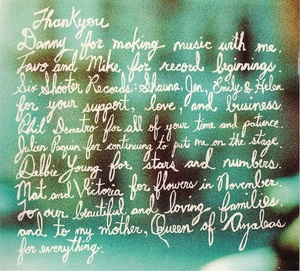 Thankyou
Danny for making music with me.
Favo and Mike for record beginnings.
Six Shooter Records: Shauna, Jen, Emily & Helen
for your support, love, and business.
Phil Demetro for all of your time and patience.
Julien Paquin for continuing to put me on the stage.
Debbie Young for stars and numbers.
Mat and Victoria for flowers in November.
To our beautiful and loving families.
and to my mother, Queen of Azaleas
for everything.